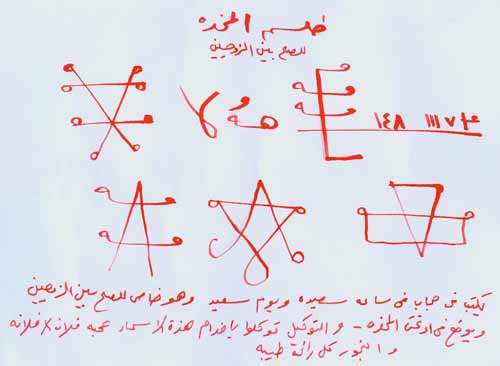 طلسم المخده
للصلح بين الزوجين
لا هـ
١٤٨ ١١١٧
يكتب فى حجاب فى ساعه سعيده ويوم سعيد وهو خاص للصلح بين الزوجين
ويوضع فى او تحت المخده - والتوكيل توكلوا يا خدام هذة الاسماء بمحبه فلانه لـ فلانه
والبخور كل رائحة طيبه